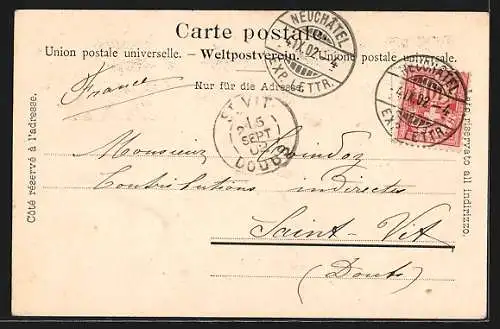 Carte postale.
Union postale universelle. – Weltpostverein. – Unione postale universale.
Nur für die Adresse.
France
NEUCHÂTEL
4.IX.02.–4
EXP. LETTR.
NEUCHÂTEL
4.IX.02.–4
EXP. LETTR.
ST VIT
SEPT
DOUBS
Côté réservé à l'adresse.
Lato riservato all indirizzo.
Monsieur
Contributions indirectes
Saint-Vit
(Doubs)